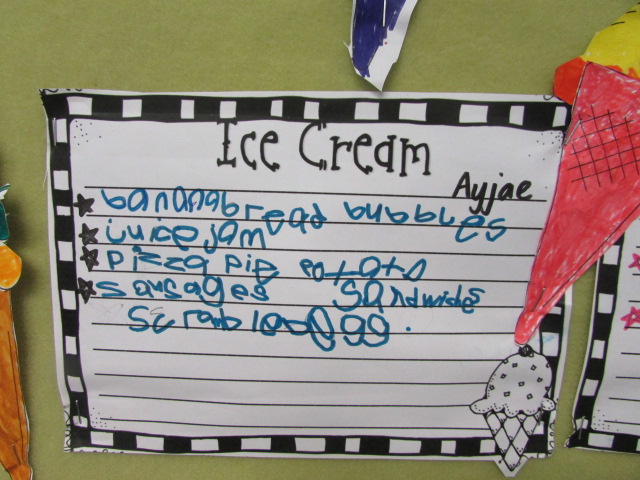 Ice Cream
Ayjae
bananabread bubbles
juice jam
pizza pie potato
sausages sandwiches
scrambleegg.